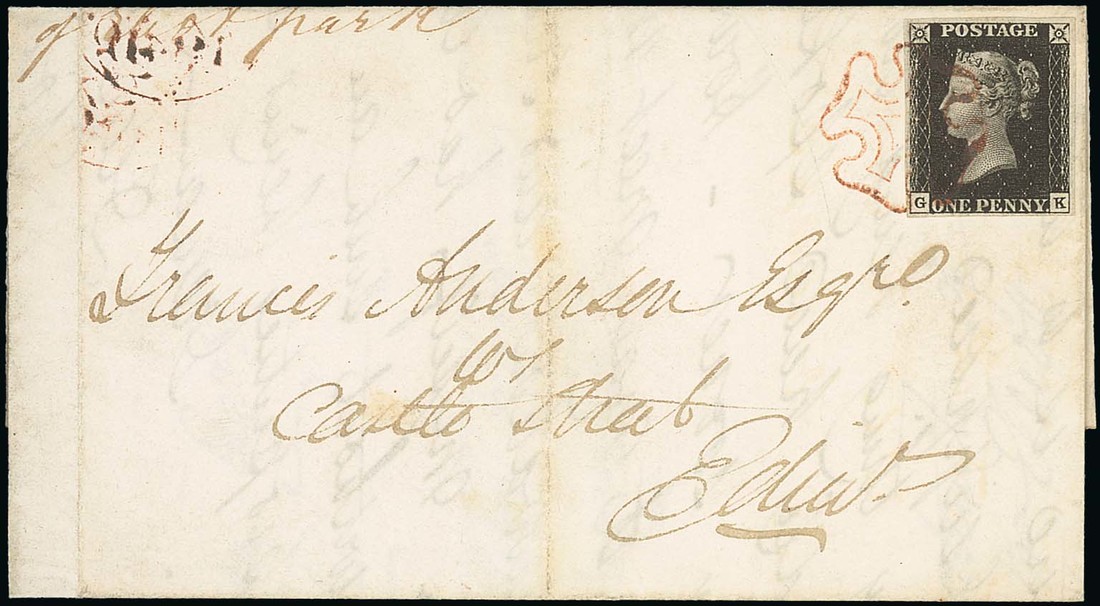 of Shot park
POSTAGE
G ONE PENNY K
Francis Anderson Esqre
WS
Castle Street
Edinr.